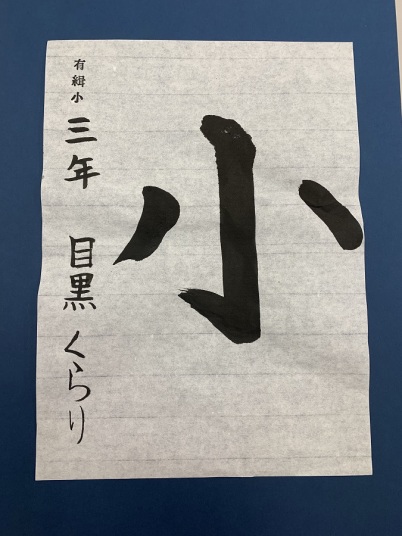 小
有緝小 三年 目黒くらり